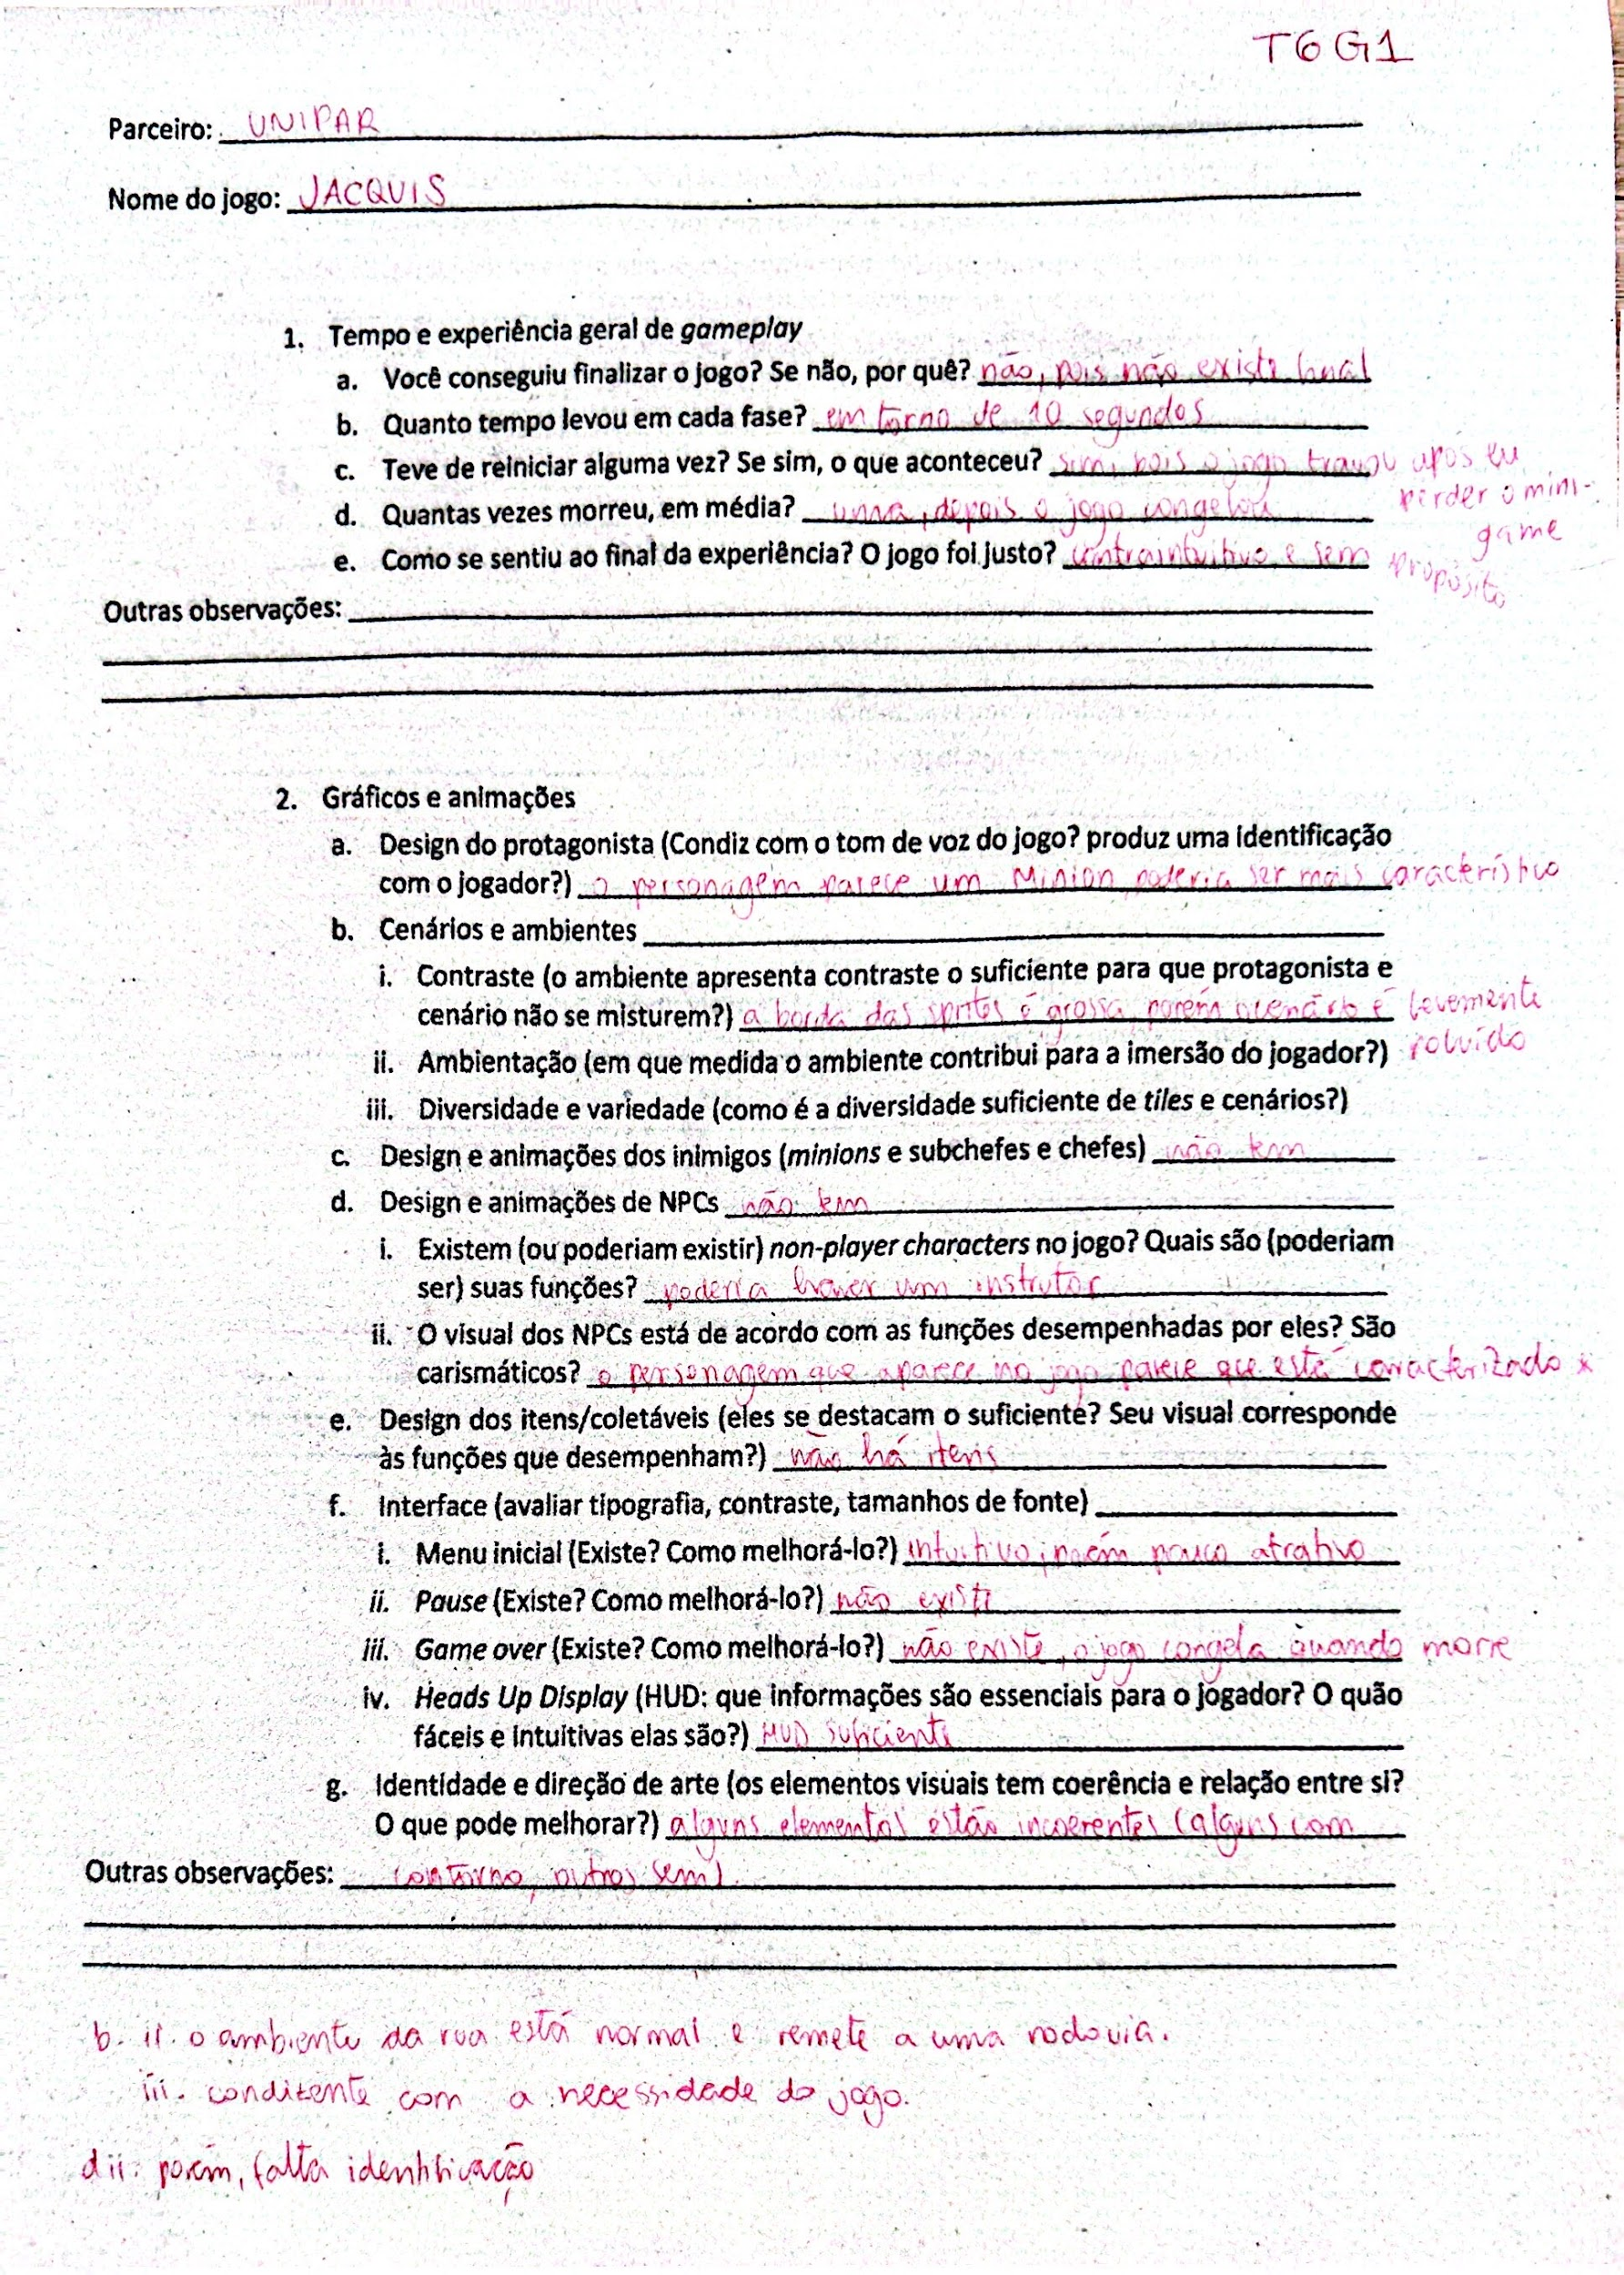 T6 G1
Parceiro: UNIPAR
Nome do jogo: JACQUIS
1. Tempo e experiência geral de gameplay
a. Você conseguiu finalizar o jogo? Se não, por quê? não, pois não existe final
b. Quanto tempo levou em cada fase? em torno de 10 segundos
c. Teve de reiniciar alguma vez? Se sim, o que aconteceu? sim, pois o jogo travou após eu
perder o mini-
d. Quantas vezes morreu, em média? uma, depois o jogo congelou
game
e. Como se sentiu ao final da experiência? O jogo foi justo? contraintuitivo e sem
propósito
Outras observações:
2. Gráficos e animações
a. Design do protagonista (Condiz com o tom de voz do jogo? produz uma identificação
com o jogador?) o personagem parece um Minion, poderia ser mais característico
b. Cenários e ambientes
i. Contraste (o ambiente apresenta contraste o suficiente para que protagonista e
cenário não se misturem?) a borda das sprites é grossa, porém o cenário é levemente
poluído
ii. Ambientação (em que medida o ambiente contribui para a imersão do jogador?)
iii. Diversidade e variedade (como é a diversidade suficiente de tiles e cenários?)
c. Design e animações dos inimigos (minions e subchefes e chefes) não tem
d. Design e animações de NPCs não tem
i. Existem (ou poderiam existir) non-player characters no jogo? Quais são (poderiam
ser) suas funções? poderia haver um instrutor
ii. O visual dos NPCs está de acordo com as funções desempenhadas por eles? São
carismáticos? o personagem que aparece no jogo parece que está caracterizado *
e. Design dos itens/coletáveis (eles se destacam o suficiente? Seu visual corresponde
às funções que desempenham?) não há itens
f. Interface (avaliar tipografia, contraste, tamanhos de fonte)
i. Menu inicial (Existe? Como melhorá-lo?) intuitivo, porém pouco atrativo
ii. Pause (Existe? Como melhorá-lo?) não existe
iii. Game over (Existe? Como melhorá-lo?) não existe, o jogo congela quando morre
iv. Heads Up Display (HUD: que informações são essenciais para o jogador? O quão
fáceis e intuitivas elas são?) HUD suficiente
g. Identidade e direção de arte (os elementos visuais tem coerência e relação entre si?
O que pode melhorar?) alguns elementos estão incoerentes (alguns com
Outras observações: contorno, outros sem).
b. ii. o ambiente da rua está normal e remete a uma rodovia.
iii. condizente com a necessidade do jogo.
d ii. porém, falta identificação